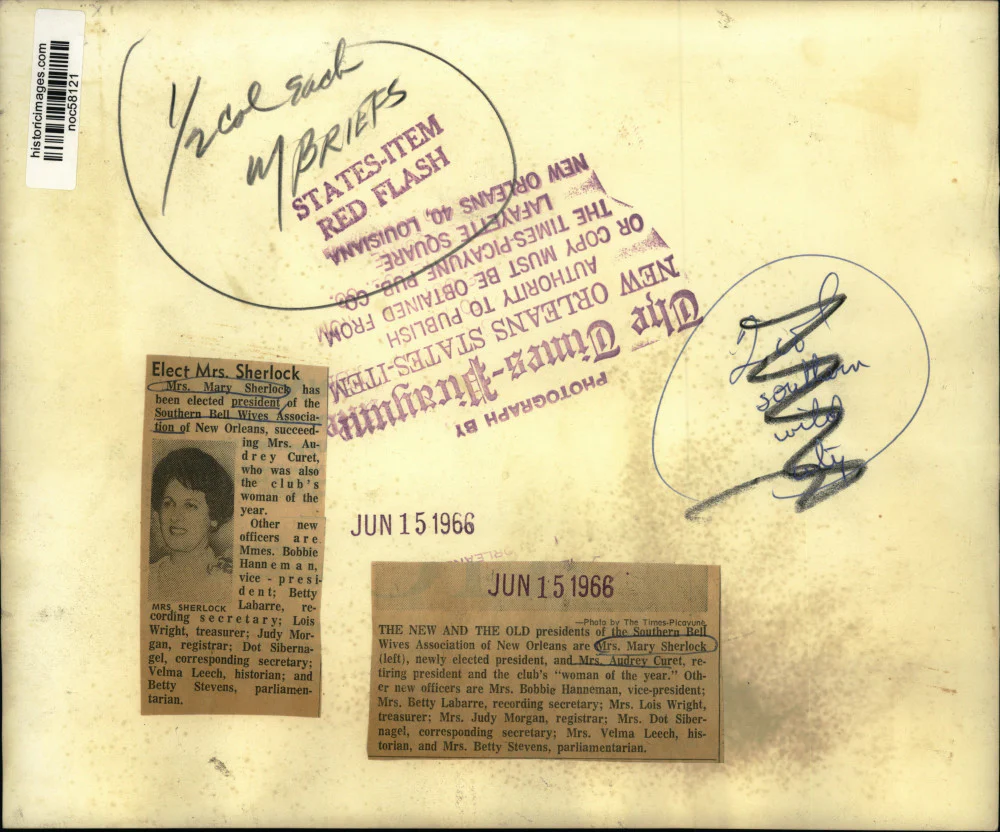 historicimages.com
noc58121
1/2 col each
W/BRIEFS
STATES-ITEM
RED FLASH
PHOTOGRAPH BY
The Times-Picayune
NEW ORLEANS STATES-ITEM
AUTHORITY TO PUBLISH
OR COPY MUST BE OBTAINED FROM
THE TIMES-PICAYUNE PUB. CO.
LAFAYETTE SQUARE
NEW ORLEANS 40, LOUISIANA
southern
Elect Mrs. Sherlock
Mrs. Mary Sherlock has
been elected president of the
Southern Bell Wives Associa-
tion of New Orleans, succeed-
ing Mrs. Au-
drey Curet,
who was also
the club's
woman of the
year.
Other new
officers are
Mmes. Bobbie
Hanneman,
vice-presi-
dent; Betty
Labarre, re-
MRS. SHERLOCK
cording secretary; Lois
Wright, treasurer; Judy Mor-
gan, registrar; Dot Siberna-
gel, corresponding secretary;
Velma Leech, historian; and
Betty Stevens, parliamen-
tarian.
JUN 15 1966
JUN 15 1966
—Photo by The Times-Picayune.
THE NEW AND THE OLD presidents of the Southern Bell
Wives Association of New Orleans are Mrs. Mary Sherlock
(left), newly elected president, and Mrs. Audrey Curet, re-
tiring president and the club's "woman of the year." Oth-
er new officers are Mrs. Bobbie Hanneman, vice-president;
Mrs. Betty Labarre, recording secretary; Mrs. Lois Wright,
treasurer; Mrs. Judy Morgan, registrar; Mrs. Dot Siber-
nagel, corresponding secretary; Mrs. Velma Leech, his-
torian, and Mrs. Betty Stevens, parliamentarian.